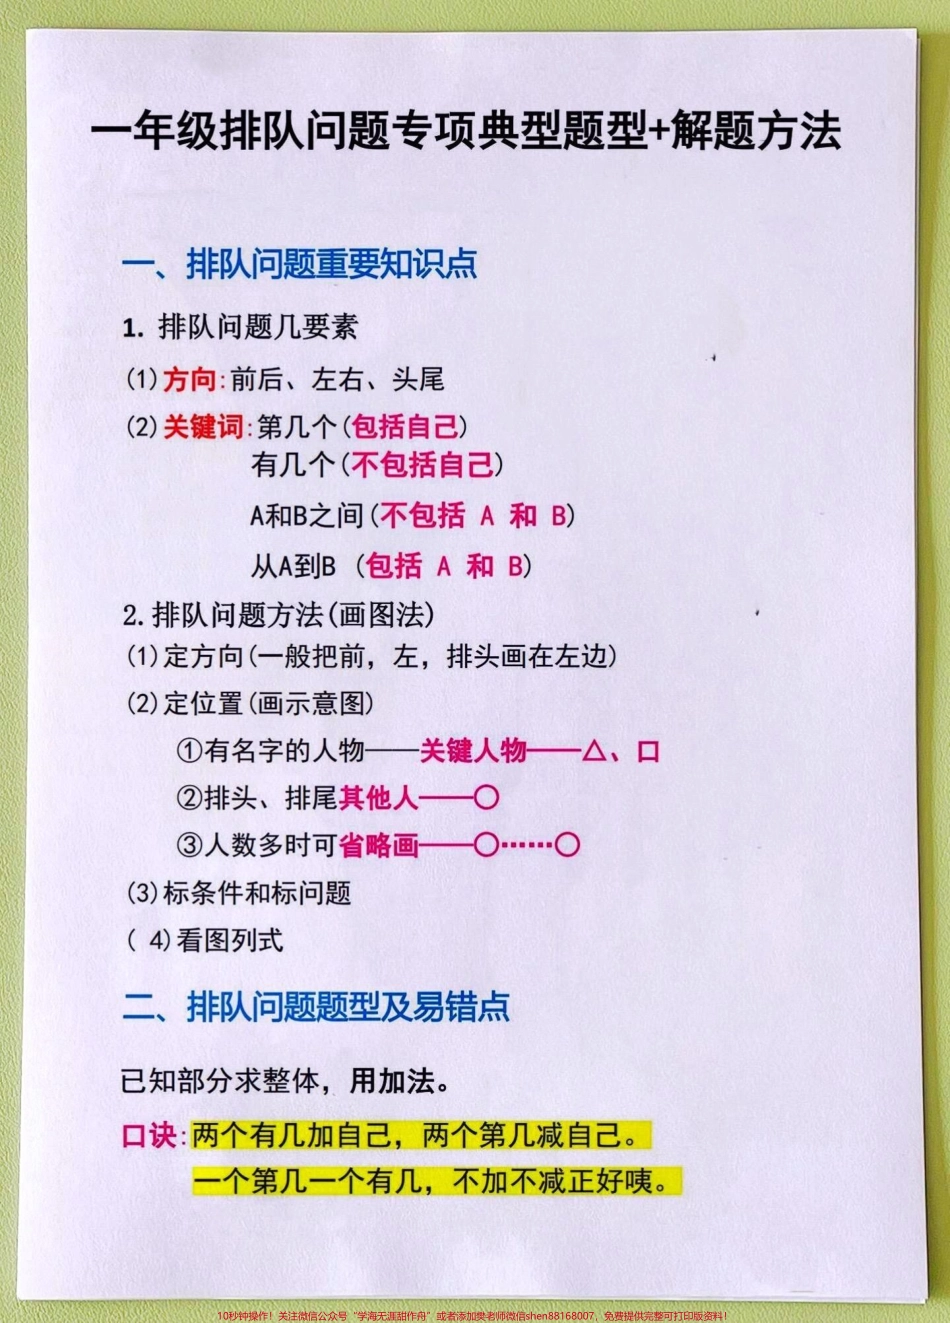 一年级排队问题专项典型题型+解题方法
一、排队问题重要知识点
1. 排队问题几要素
(1)方向:前后、左右、头尾
(2)关键词:第几个(包括自己)
有几个(不包括自己)
A和B之间(不包括 A 和 B)
从A到B (包括 A 和 B)
2.排队问题方法(画图法)
(1)定方向(一般把前，左，排头画在左边)
(2)定位置(画示意图)
①有名字的人物——关键人物——△、口
②排头、排尾其他人——〇
③人数多时可省略画——〇……〇
(3)标条件和标问题
( 4)看图列式
二、排队问题题型及易错点
已知部分求整体，用加法。
口诀:两个有几加自己，两个第几减自己。
一个第几一个有几，不加不减正好咦。
10秒钟操作！关注微信公众号“学海无涯甜作舟”或者添加樊老师微信shen88168007，免费提供完整可打印版资料！